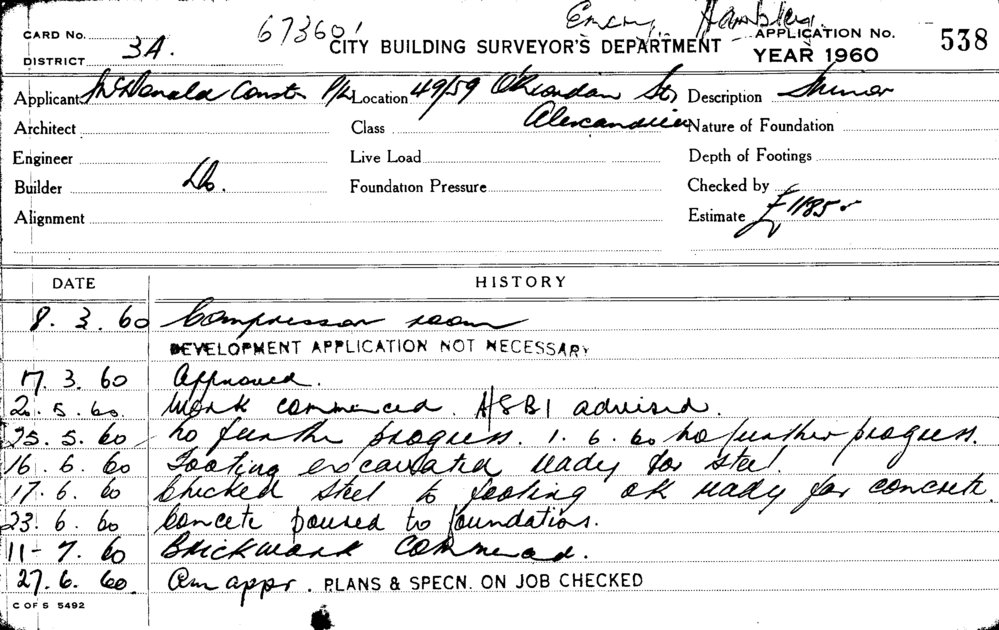 67360 Emery Hambley
CARD No. CITY BUILDING SURVEYOR'S DEPARTMENT APPLICATION No. 538
DISTRICT 3A. YEAR 1960
Applicant McDonald Constr P/L Location 49/59 O'Riordan St, Description Minor
Architect Class Alexandria Nature of Foundation
Engineer Live Load Depth of Footings
Builder Do. Foundation Pressure Checked by
Alignment Estimate £1185
DATE HISTORY
8. 3. 60 Compressor room
DEVELOPMENT APPLICATION NOT NECESSARY
17. 3. 60 Approved.
2. 5. 60. Work commenced. HSBI advised.
25. 5. 60 No further progress. 1. 6. 60 No further progress.
16. 6. 60 Footing excavated ready for steel.
17. 6. 60 Checked steel to footing OK ready for concrete.
23. 6. 60 Concete poured to foundations.
11-7. 60 Brickwork commenced.
27. 6. 60. Am appr. PLANS & SPECN. ON JOB CHECKED
C OF S 5492